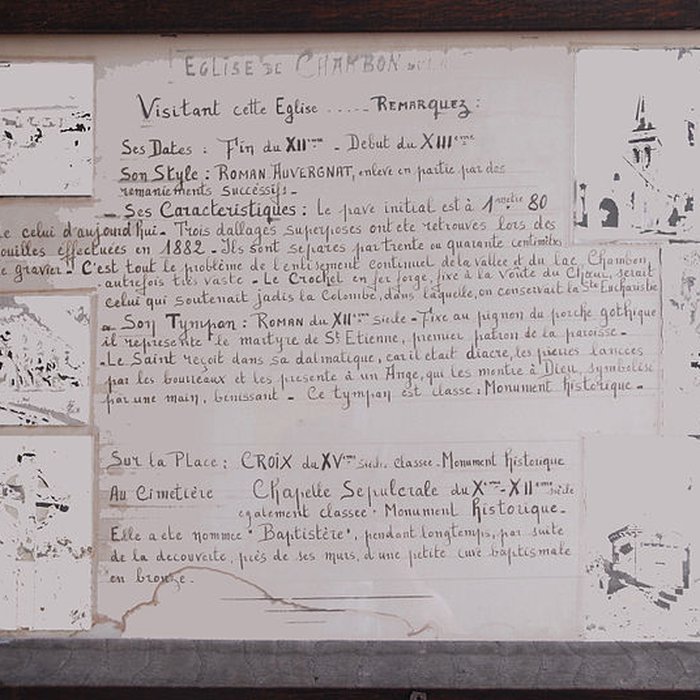 EGLISE DE CHAMBON
Visitant cette Eglise ..... REMARQUEZ :
Ses Dates : Fin du XIIème - Debut du XIIIeme
Son Style : ROMAN AUVERGNAT, enlevé en partie par des
remaniements successifs -
- Ses Caracteristiques : Le pavé initial est à 1 mètre 80
celui d'aujourd'hui - Trois dallages superposés ont été retrouvés lors des
ouilles effectuées en 1882 - Ils sont separes par trente ou quarante centimètres
e gravier - C'est tout le problème de l'enlisement continuel de la vallée et du lac Chambon,
autrefois très vaste - Le Crochet en fer forgé, fixé à la Voûte du Chœur, serait
celui qui soutenait jadis la Colombe, dans laquelle, on conservait la Ste Eucharistie
- Son Tympan : ROMAN du XIIème siècle - Fixé au pignon du porche gothique
il représente le martyre de St Etienne, premier patron de la paroisse -
- Le Saint reçoit dans sa dalmatique, car il était diacre, les pierres lancées
par les bourreaux et les presente à un Ange, qui les montre à Dieu, symbolisé
par une main, bénissant - Ce tympan est classé : Monument historique -
Sur la Place : CROIX du XVème siècle classée - Monument historique
Au Cimetière Chapelle Sepulcrale du Xème-XIIème siècle
également classée Monument historique -
Elle a été nommée "Baptistère", pendant longtemps, par suite
de la découverte, près de ses murs, d'une petite cuve baptismale
en bronze.